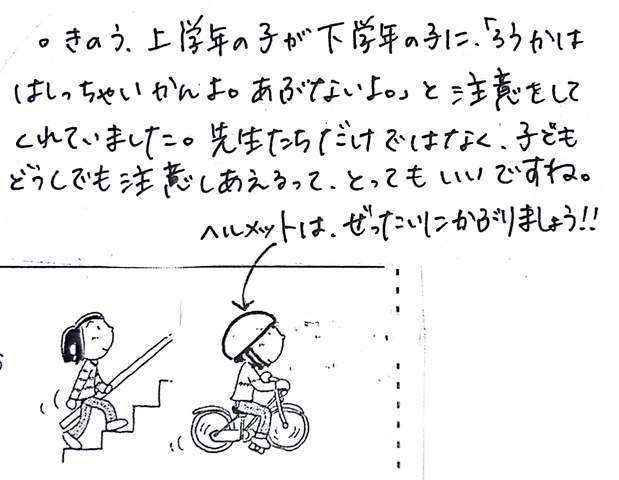 ○きのう、上学年の子が下学年の子に、「ろうかは
はしっちゃいかんよ。あぶないよ。」と注意をして
くれていました。先生たちだけではなく、子ども
どうしでも注意しあえるって、とってもいいですね。
ヘルメットは、ぜったいにかぶりましょう!!